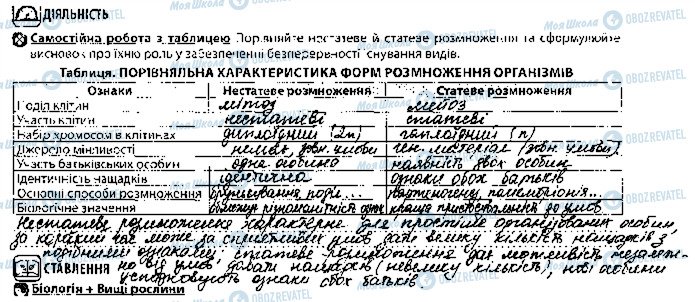 ДІЯЛЬНІСТЬ
Самостійна робота з таблицею Порівняйте нестатеве й статеве розмноження та сформулюйте
висновок про їхню роль у забезпеченні безперервності існування видів.
Таблиця. ПОРІВНЯЛЬНА ХАРАКТЕРИСТИКА ФОРМ РОЗМНОЖЕННЯ ОРГАНІЗМІВ
Ознаки Нестатеве розмноження Статеве розмноження
Поділ клітин мітоз мейоз
Участь клітин нестатеві статеві
Набір хромосом в клітинах диплоїдний (2n) гаплоїдний (n)
Джерело мінливості немає, зовн. умови ген. матеріал (зовн. умови)
Участь батьківських особин одна особина наявність двох особин
Ідентичність нащадків ідентична ознаки обох батьків
Основні способи розмноження брунькування, поділ...
Біологічне значення краще пристосування до умов
Нестатеве розмноження характерне для простіше організованих особин
за короткий час може за сприятливих умов дати велику кількість нащадків з
подібними ознаками; статеве розмноження дає можливість незалежно
СТАВЛЕННЯ
від умов давати нащадків (невелику кількість), нові особини
успадковують ознаки обох батьків.
Біологія + Вищі рослини